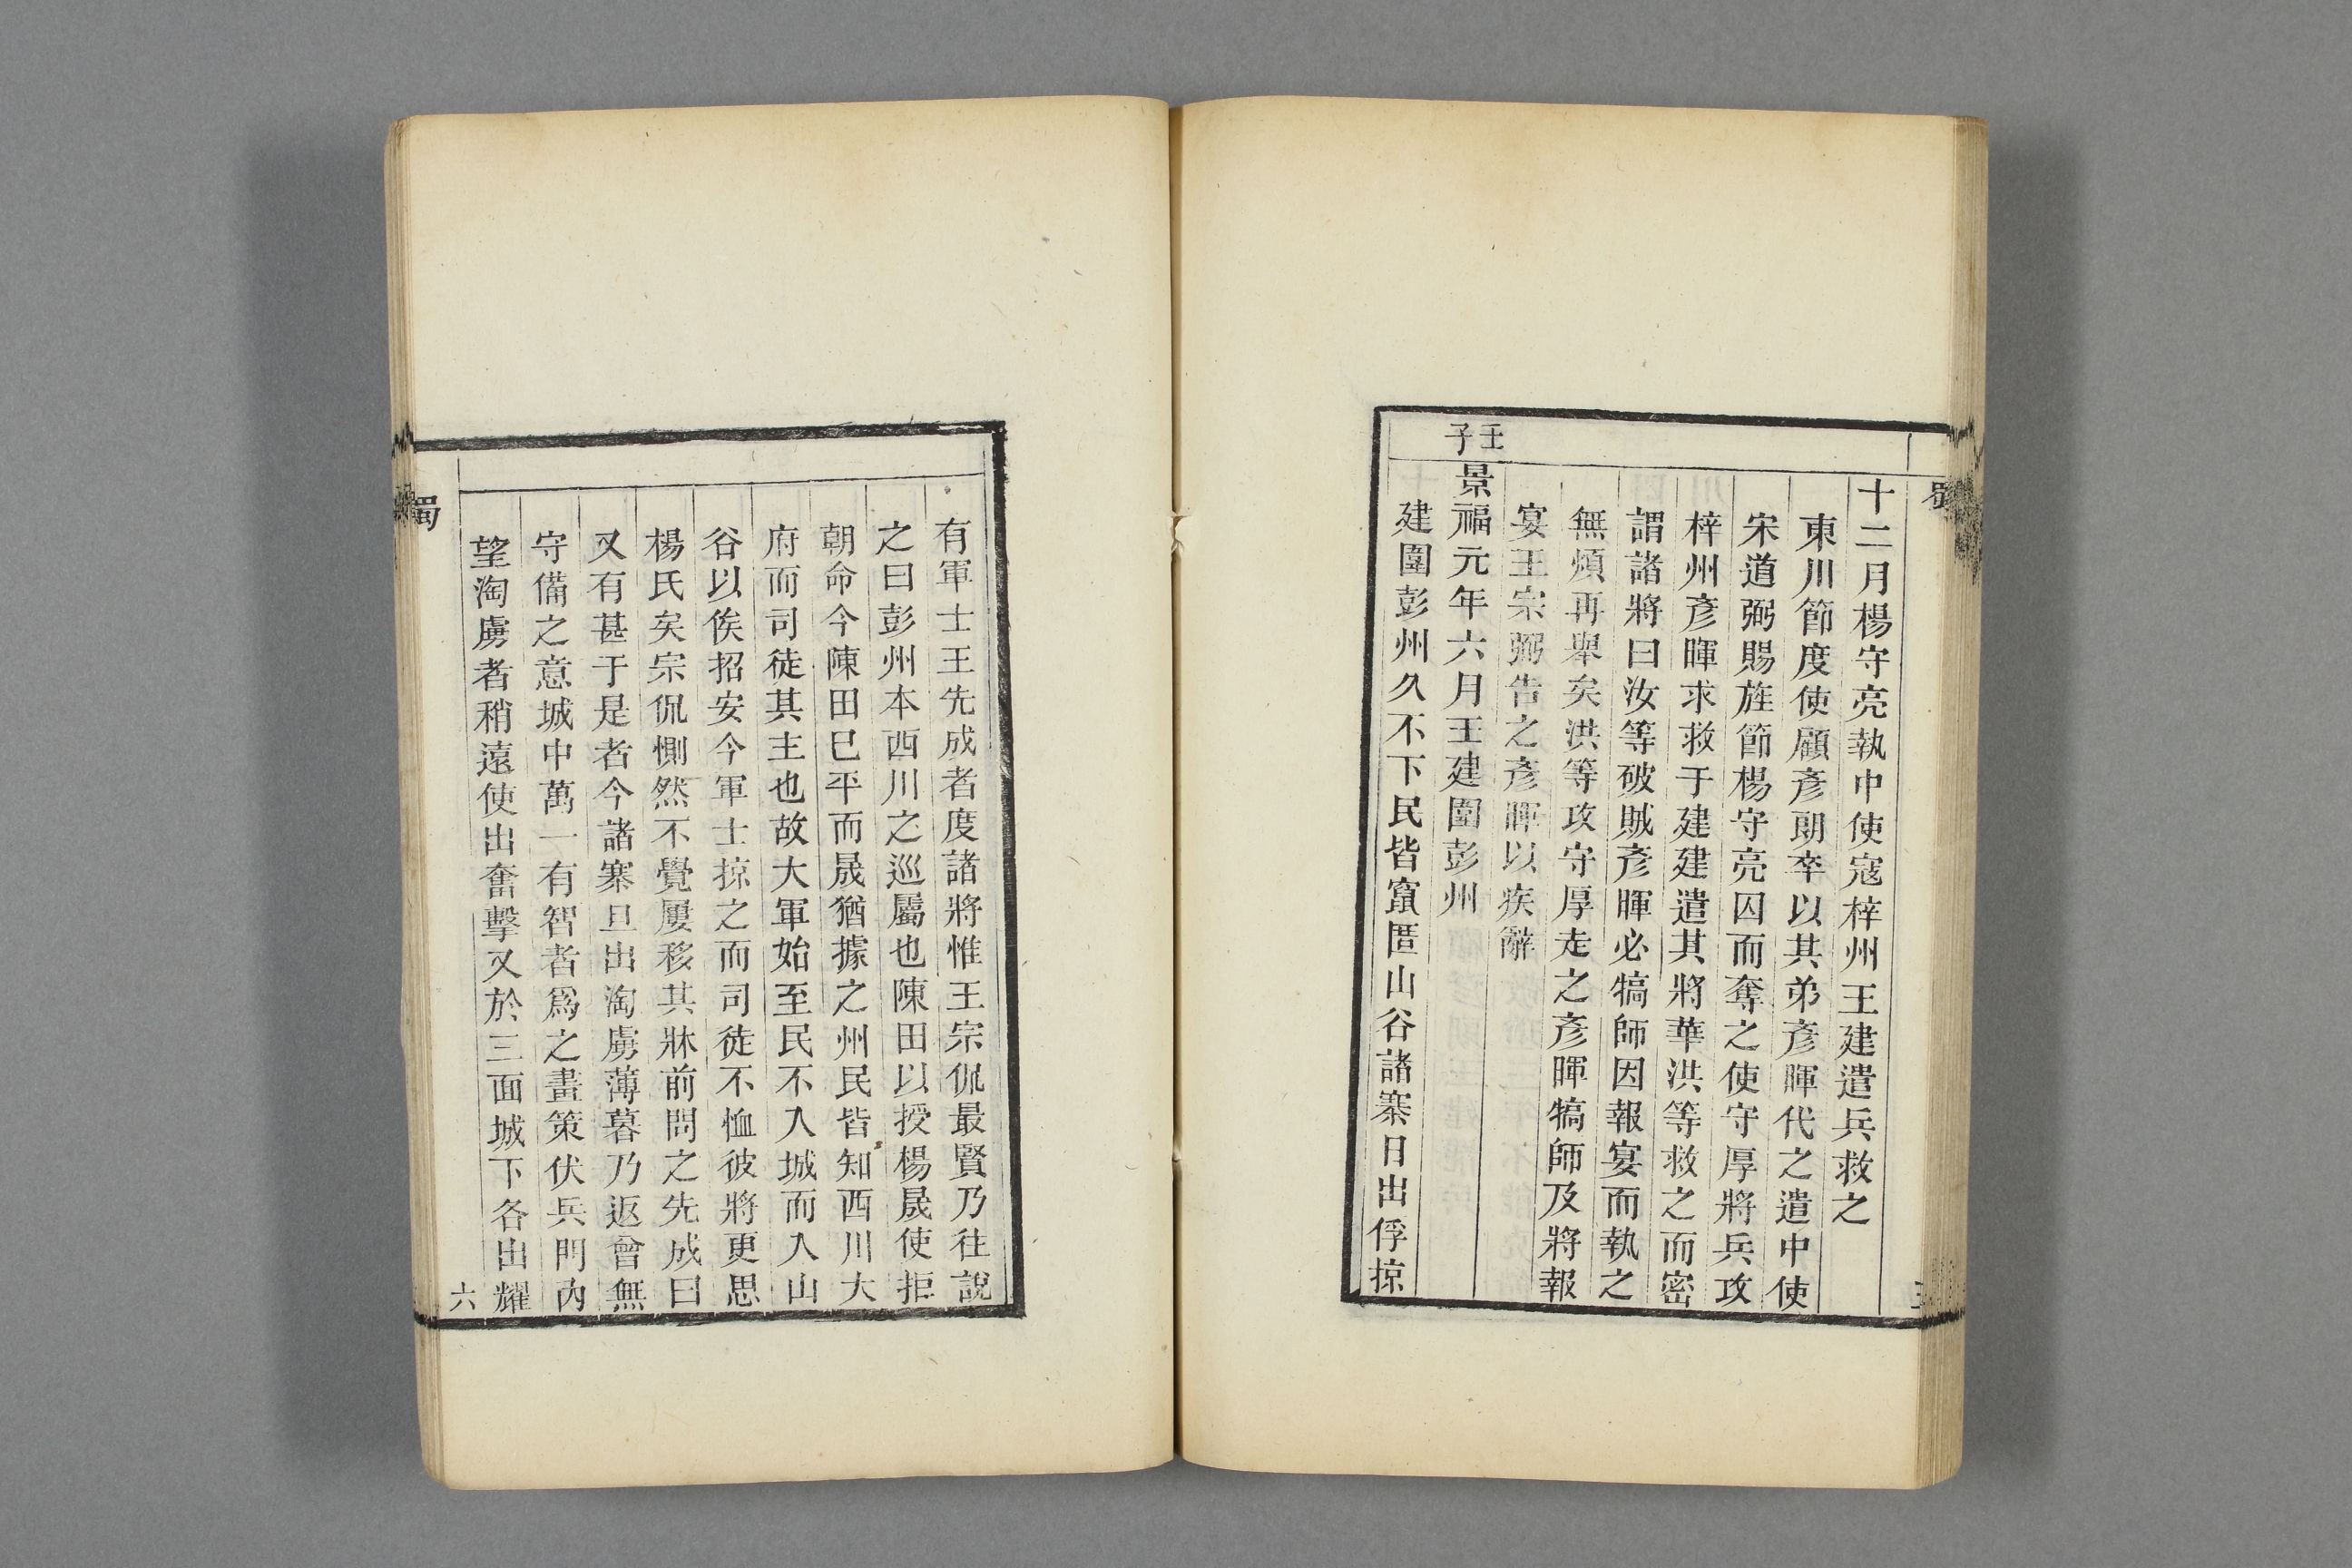 十二月楊守亮執中使寇梓州王建遣兵救之
東川節度使顧彥朗卒以其弟彥暉代之遣中使
宋道弼賜旌節楊守亮囚而奪之使守厚將兵攻
梓州彥暉求救于建建遣其將華洪等救之而密
謂諸將曰汝等破賊彥暉必犒師因報宴而執之
無煩再舉矣洪等攻守厚走之彥暉犒師及將報
宴王宗弼告之彥暉以疾辭
壬子
景福元年六月王建圍彭州
建圍彭州久不下民皆竄匿山谷諸寨日出俘掠
有軍士王先成者度諸將惟王宗侃最賢乃往說
之曰彭州本西川之巡屬也陳田以授楊晟使拒
朝命今陳田巳平而晟猶據之州民皆知西川大
府而司徒其主也故大軍始至民不入城而入山
谷以俟招安今軍士掠之而司徒不恤彼將更思
楊氏矣宗侃惻然不覺屢移其牀前問之先成曰
又有甚于是者今諸寨旦出淘虜薄暮乃返曾無
守備之意城中萬一有智者爲之畫策伏兵門內
望淘虜者稍遠使出奮擊又於三面城下各出耀
蜀
六